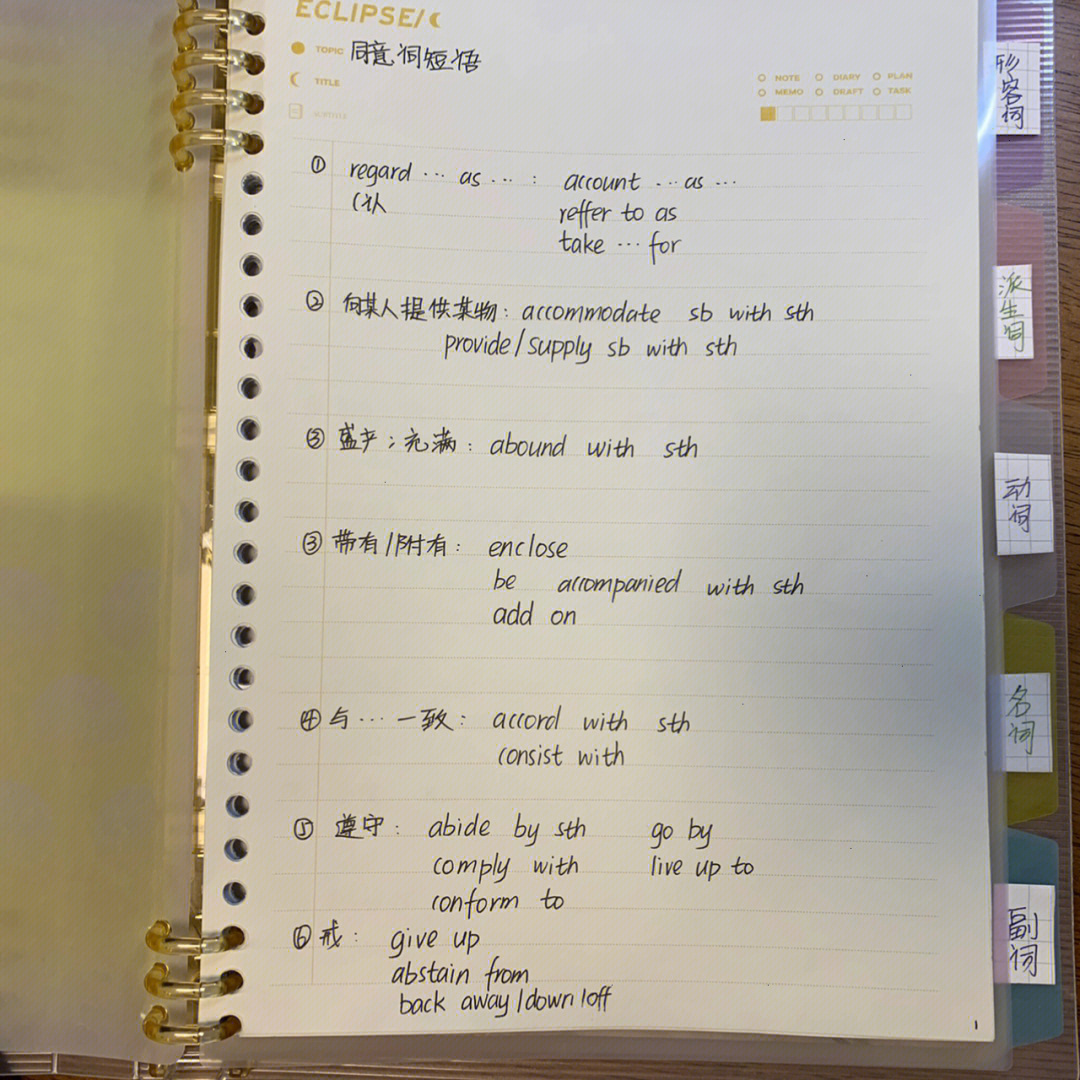 ECLIPSE/
TOPIC 同意词短语
TITLE
SUBTITLE
NOTE DIARY PLAN
MEMO DRAFT TASK
① regard ... as ... : account ... as ...
(认
reffer to as
take ... for
② 向某人提供某物: accommodate sb with sth
provide/supply sb with sth
③ 盛产;充满: abound with sth
③ 带有/附有: enclose
be accompanied with sth
add on
④ 与...一致: accord with sth
consist with
⑤ 遵守: abide by sth go by
comply with live up to
conform to
⑥ 戒: give up
abstain from
back away/down/off
1
形容词
派生词
动词
名词
副词